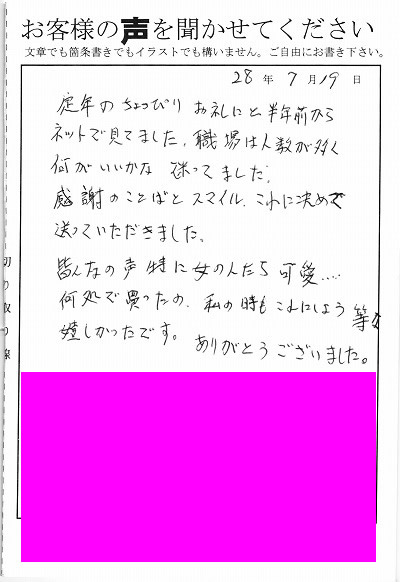 お客様の声を聞かせてください
文章でも箇条書きでもイラストでも構いません。ご自由にお書き下さい。
28年7月19日
定年のちょっぴりお礼にと半年前から
ネットで見てました、職場は人数が多く
何がいいかな 迷ってました。
感謝のことばとスマイル、これに決めて
送っていただきました、
皆んなの声特に女の人たち可愛....
何処で買ったの、私の時もこれにしよう等々
嬉しかったです。ありがとうございました。
切り取り線